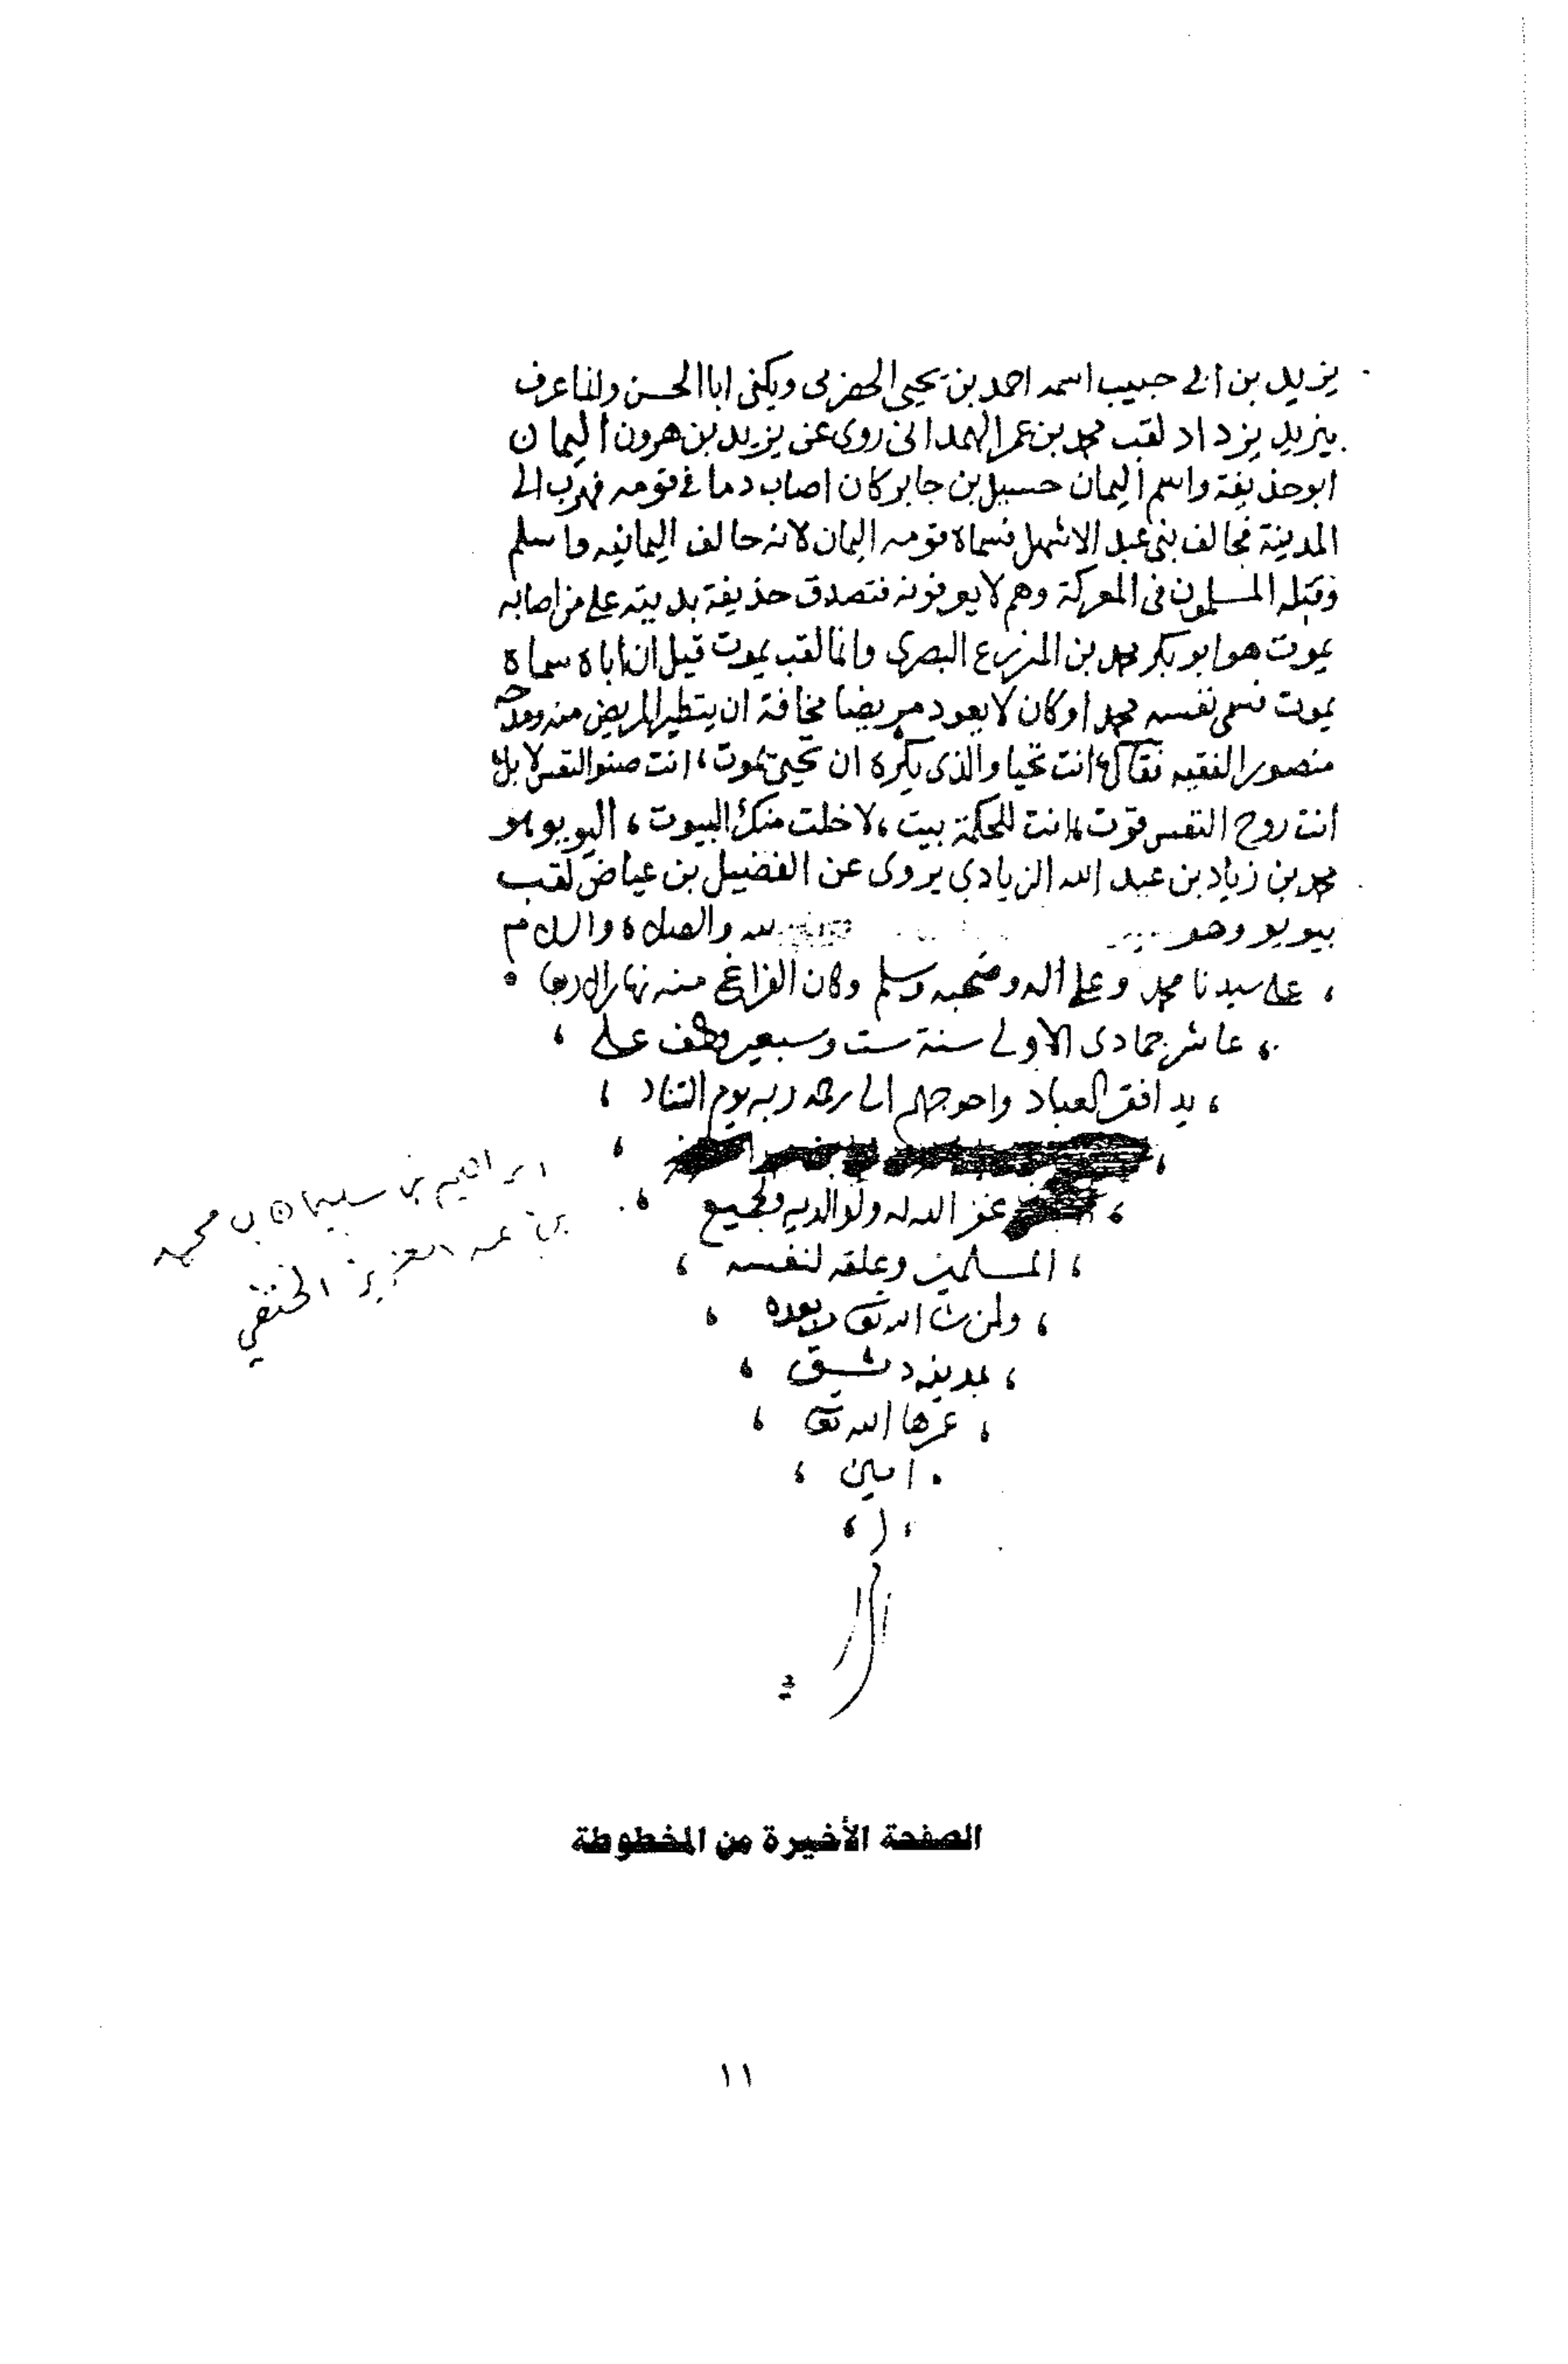 يزيد بن ابى حبيب اسمه احمد بن يحيى الحضرمى ويكنى ابا الحسن وانما عرف
بيزيد يزداد لقب محمد بن عمر الهمدانى روى عن يزيد بن هرون اليمان
ابو حذيفة واسم اليمان حسيل بن جابر كان اصاب دما فى قومه فهرب الى
المدينة فحالف بنى عبد الاشهل فسماه قومه اليمان لانه حالف اليمانيه واسلم
وقتله المسلمون فى المعركة وهم لا يعرفونه فتصدق حذيفة بديته على من اصابه
يموت هو ابو بكر محمد بن المزرع البصرى وانما لقب يموت قيل ان اباه سماه
يموت فسمى نفسه محمدا وكان لا يعود مريضا مخافة ان يتطير المريض منه ومدحه
منصور الفقيه فقال انت تحيا والذى يكره ان تحيى يموت، انت صنو النفس لا بل
انت روح النفس قوت، انت للحكمة بيت، لا خلت منك البيوت، اليويو هو
محمد بن زياد بن عبد الله الزيادي يروى عن الفضيل بن عياض لقب
بيويو وهو لله والصلاة والسلام
، على سيدنا محمد وعلى اله وصحبه وسلم وكان الفراغ منه نهار الاربعا
، عاشر جمادى الاولى سنة ست وسبعين والف على ،
، يد افقر العباد واحوجهم الى رحمة ربه يوم التناد ،
، غفر الله له ولوالديه ولجميع ،
، المسلمين وعلقه لنفسه ،
، ولمن شا الله تعالى بعده ،
، بمدينة دمشق ،
، عمرها الله تعالى ،
امين ،
ابراهيم بن سليمان بن محمد
بن عبد العزيز الحنفي
الصفحة الأخيرة من المخطوطة
١١